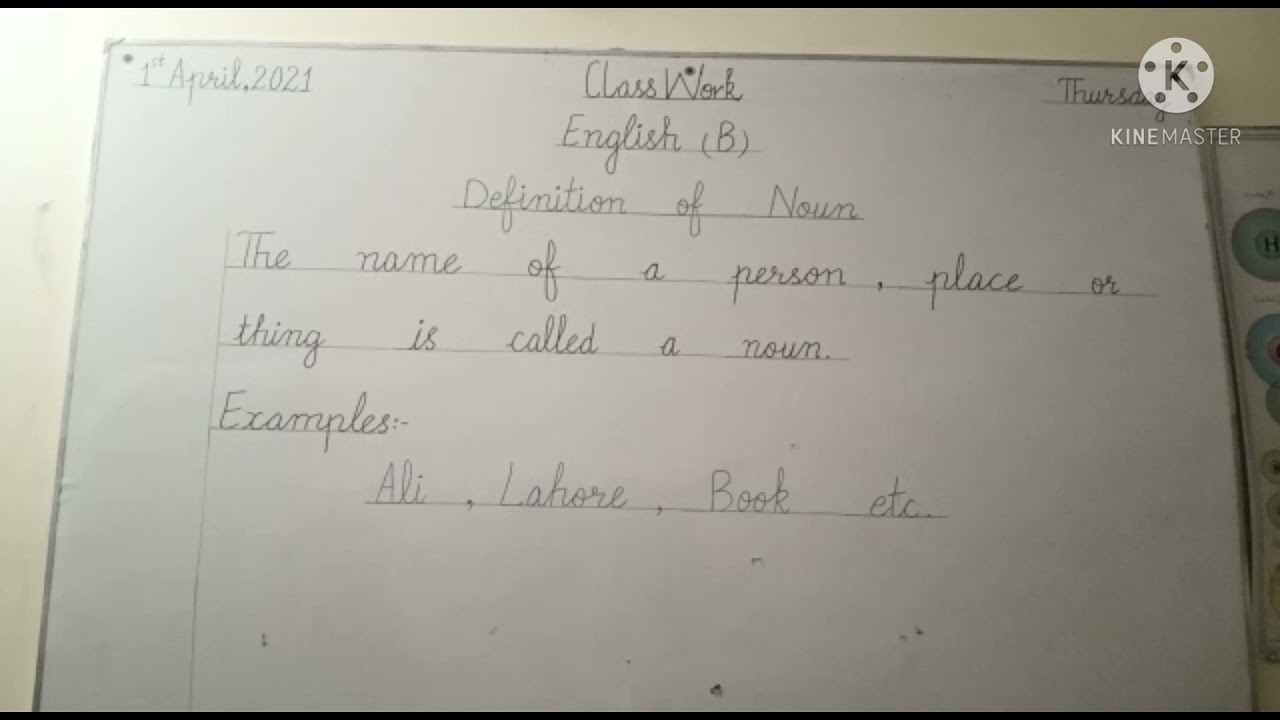 1st April, 2021 Class Work Thursday
KINEMASTER
English (B)
Definition of Noun
The name of a person, place or
thing is called a noun.
Examples:-
Ali, Lahore, Book etc.